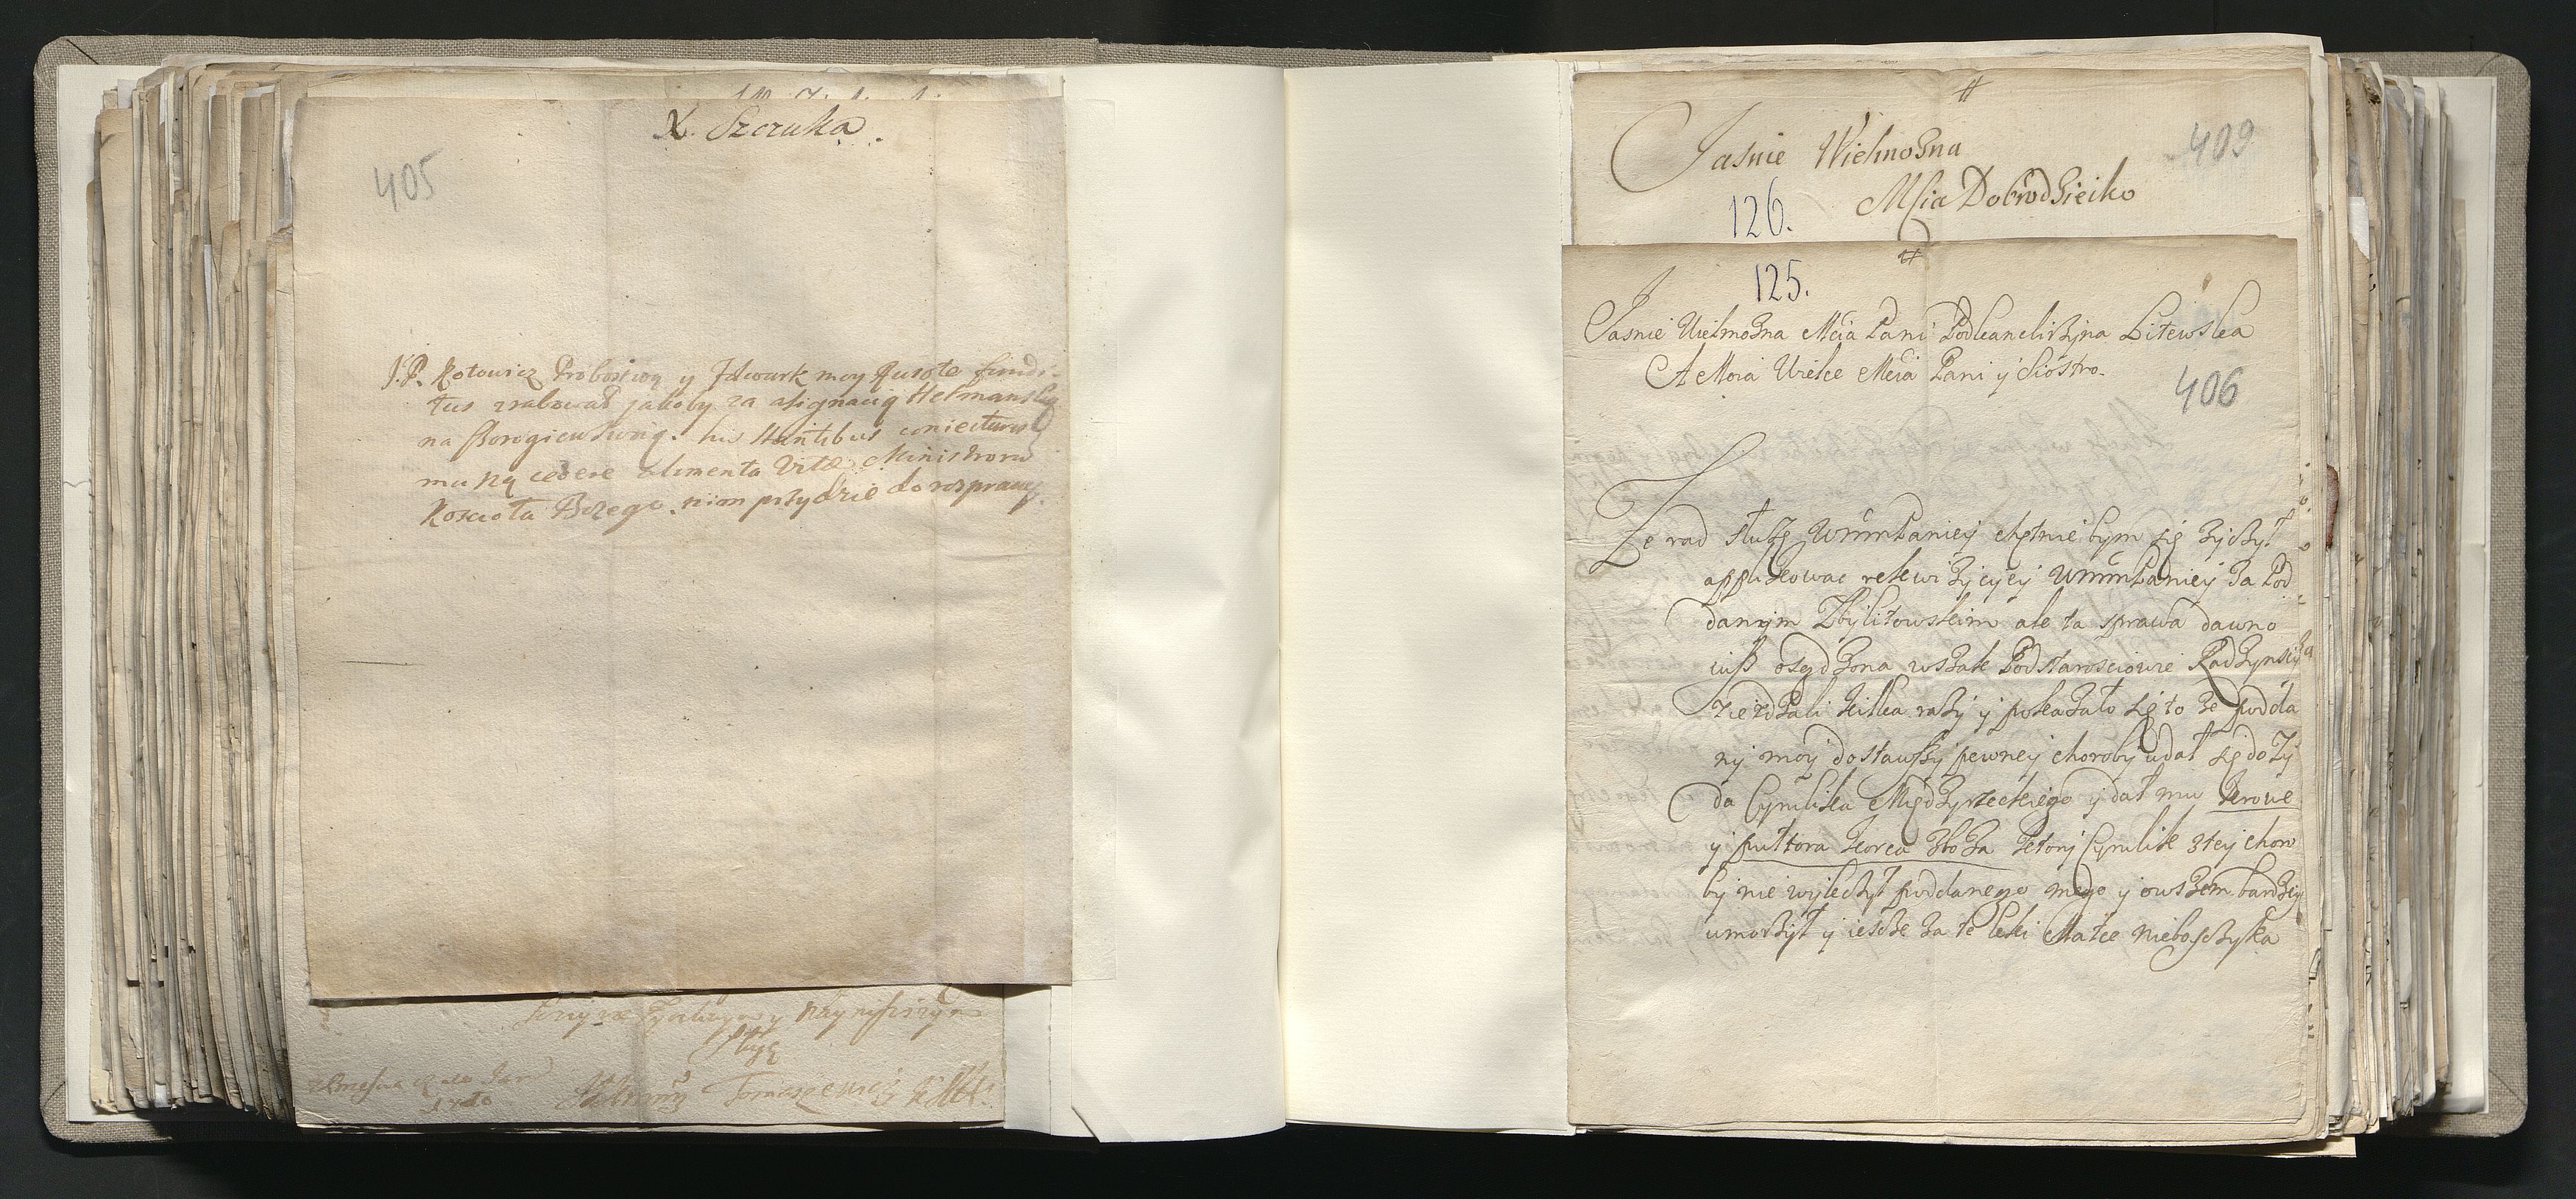 X. Szczuka.
405
J.P. Kotowicz Probostwo y Folwark moy Quote fundi-
tus zrabował jakoby za assignacią Hetmanską
na his stantibus coniecturis
muszą cedere alimenta Vitæ Ministrorum
Koscioła Bożego. nim przydzie do rosprawy.
Słuzę
Tomaszewicz
#
Jasnie Wielmożna
409
Mścia Dobrodzieiko
126.
#
125.
Jasnie Wielmożna Mcia Pani Podkanclirzyna Litewska
A Moia Wielce Mcia Pani y Siostro.
406
Ze rad służę WmmPaniey chętnie bym się życzył
applikowac rekwizycyey WmmPaniey za Pod
danym Zbylitowskim ale ta sprawa dawno
iuß osądzona wszak Podstarosciowie Radzynscy
zieżdzali kilka razy y pokazało się to że podda
ny moy dostawßy pewney choroby udał się do Zy
da Cyrulika Międzyrzeckiego y dał mu krowe
y pułtora korca zboża ktory Cyrulik z tey choro
by nie wyleczył poddanego mego y owszem bardziey
umorzył y iescze za te leki Matce nieboszczyka